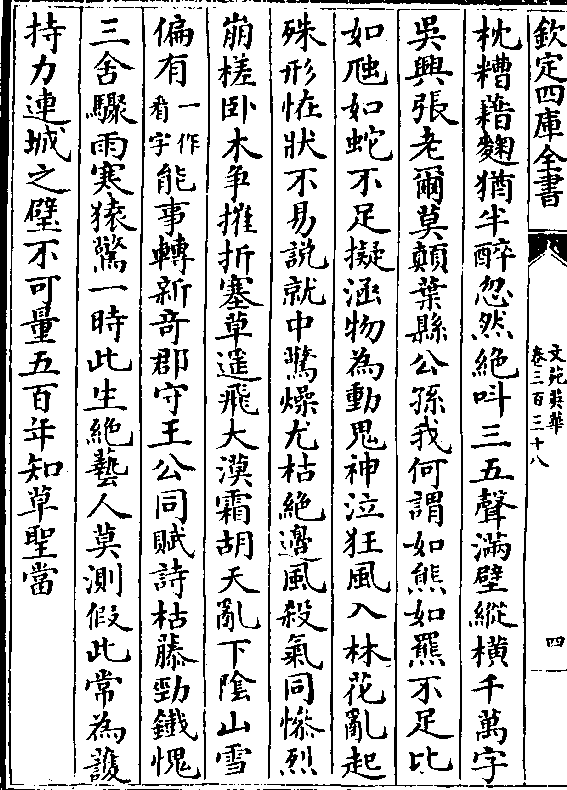 欽定四庫全書
文苑英華
卷三百三十八
四
枕糟藉麴猶半醉忽然絶呌三五聲滿壁縱横千萬字
吳興張老爾莫顛葉縣公孫我何謂如熊如羆不足比
如虺如蛇不足擬涵物為動鬼神泣狂風入林花亂起
殊形怪狀不易説就中驚燥尤枯絶邊風殺氣同慘烈
崩槎卧木争摧折塞草遥飛大漠霜胡天亂下陰山雪
偏有一作看字能事轉新竒郡守王公同賦詩枯藤勁鐵愧
三舍驟雨寒猿驚一時此生絶藝人莫測假此常為護
持力連城之璧不可量五百年知草聖當